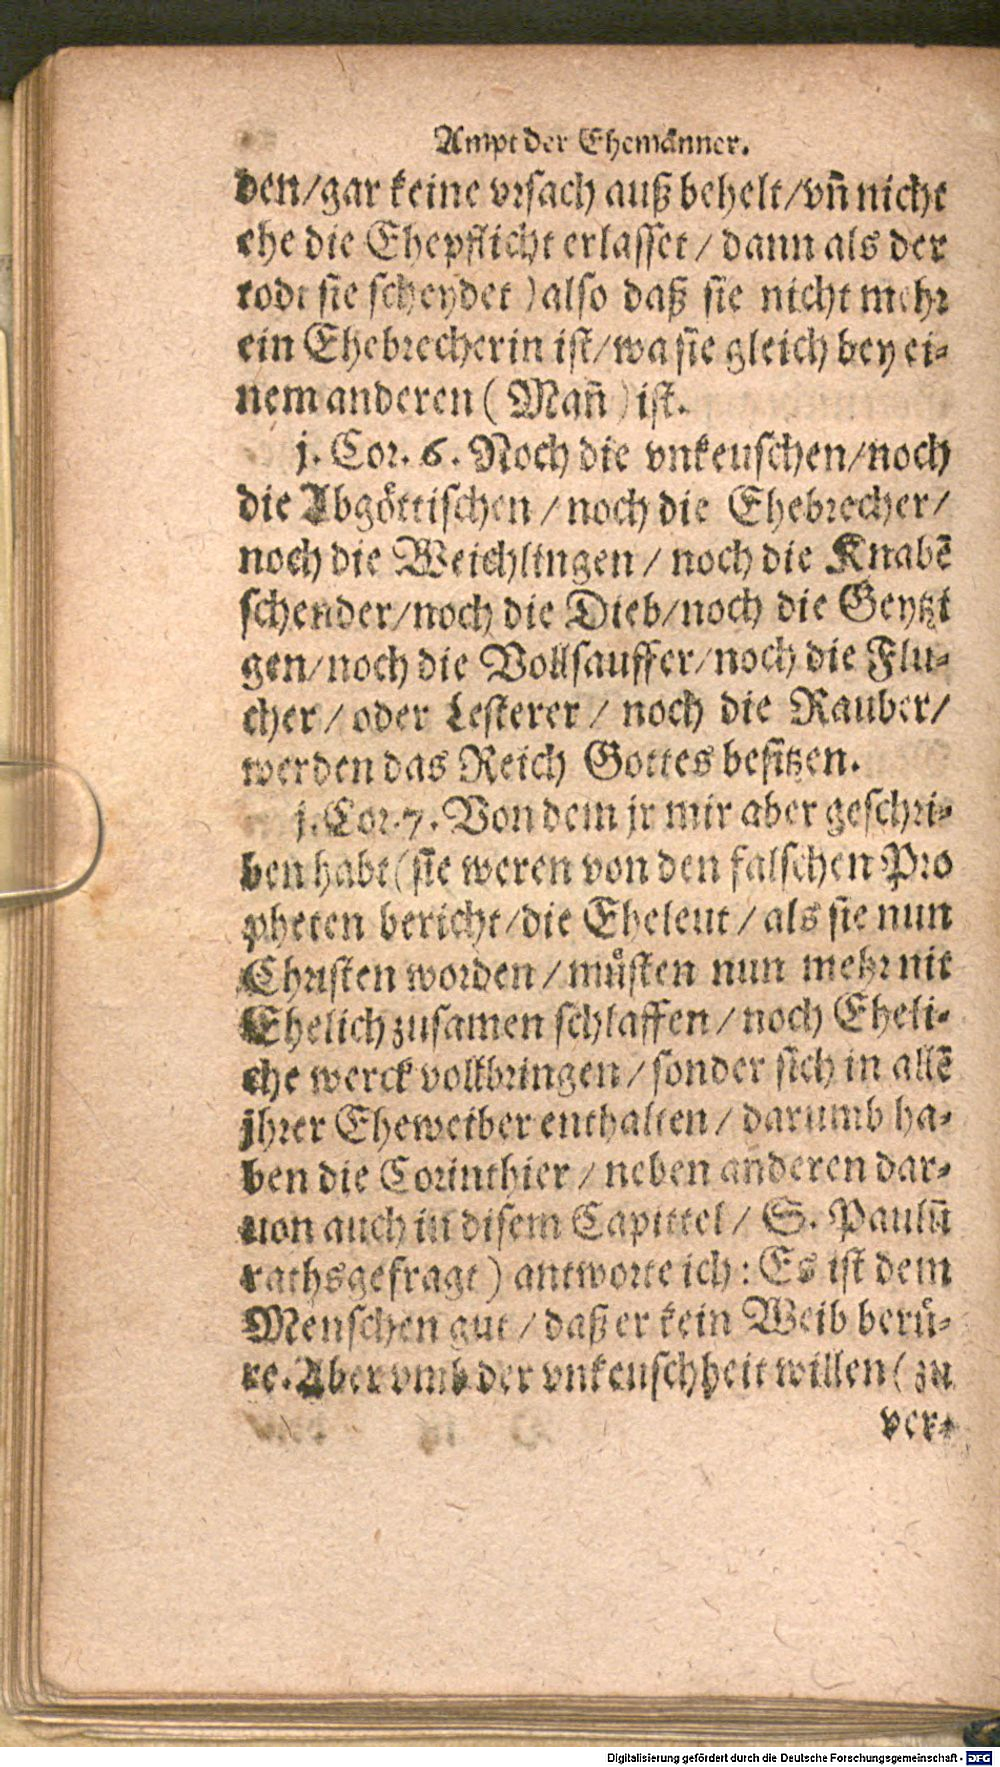 Ampt der Ehemänner.
den/gar keine vrsach auß behelt/vn̄ nicht
ehe die Ehepflicht erlasset / dann als der
todt sie scheydet ) also daß sie nicht mehr
ein Ehebrecherin ist/wa sie gleich bey ei-
nem anderen ( Man̄ ) ist.
j. Cor. 6. Noch die vnkeuschen/noch
die Abgöttischen / noch die Ehebrecher/
noch die Weichlingen / noch die Knabē
schender/noch die Dieb/noch die Geytzi
gen/noch die Vollsauffer/noch die Flu-
cher / oder Lesterer / noch die Rauber/
werden das Reich Gottes besitzen.
j. Cor. 7. Von dem jr mir aber geschri-
ben habt (sie weren von den falschen Pro
pheten bericht/die Eheleut / als sie nun
Christen worden / müsten nun mehr nit
Ehelich zusamen schlaffen / noch Eheli-
che werck vollbringen / sonder sich in allē
jhrer Eheweiber enthalten / darumb ha-
ben die Corinthier / neben anderen dar-
uon auch in disem Capittel / S. Paulū
rathsgefragt ) antworte ich : Es ist dem
Menschen gut / daß er kein Weib berü-
re. Aber vmb der vnkeuschheit willen ( zu
ver-
Digitalisierung gefördert durch die Deutsche Forschungsgemeinschaft - DFG